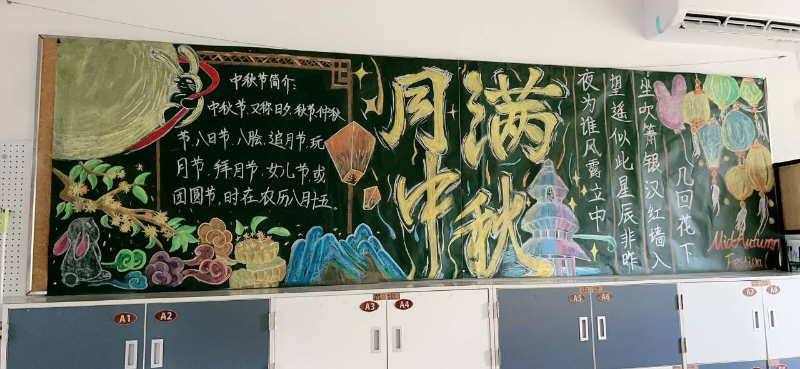 中秋节简介:
中秋节、又称日夕、秋节、仲秋
节、八日节、八脸、追月节、玩
月节、拜月节、女儿节、或
团圆节、时在农历八月十五
月满
中秋
几回花下
坐吹箫银汉红墙入
望遥似此星辰非昨
夜为谁风露立中
MidAutumn
Festival
A1
A2
A3
A4
A5
A6
A7
A8